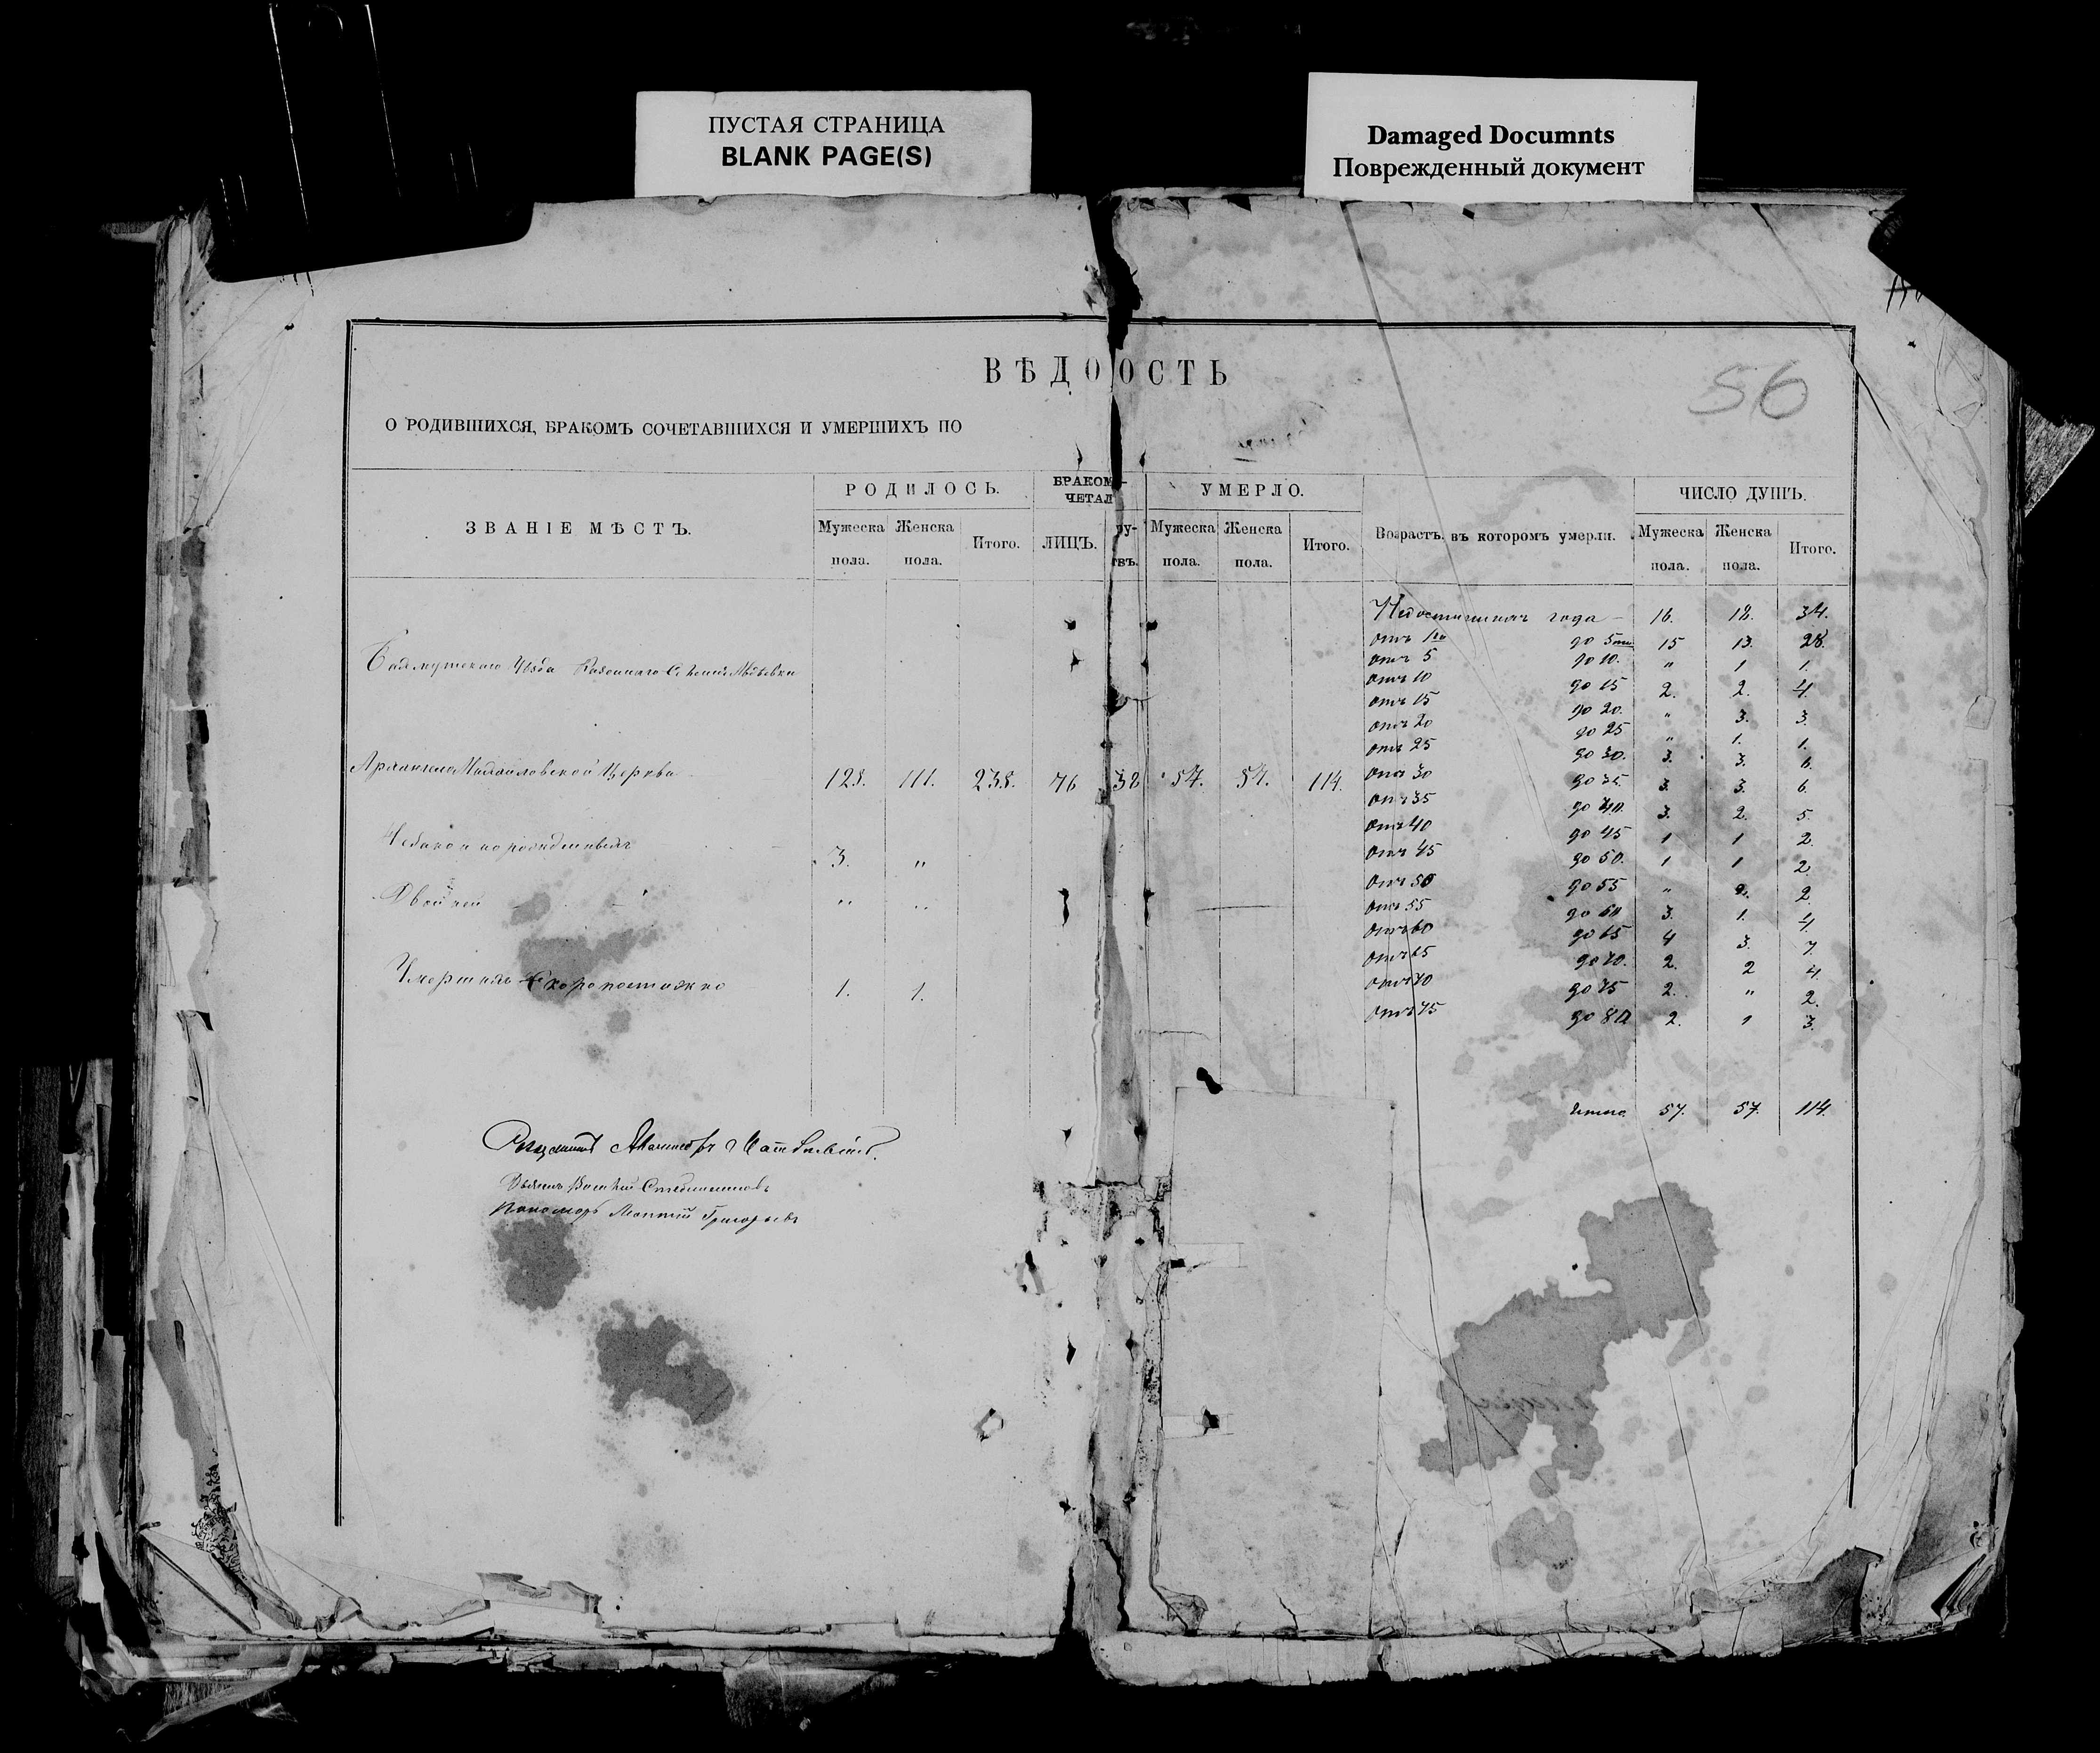 ПУСТАЯ СТРАНИЦА
BLANK PAGE(S)
Damaged Documnts
Поврежденный документ
56
ВѢДО ОСТЬ
О РОДИВШИХСЯ, БРАКОМЪ СОЧЕТАВШИХСЯ И УМЕРШИХЪ ПО
ЗВАНІЕ МѢСТЪ.
РОДИЛОСЬ.
БРАКОМ
ЧЕТАЛ
УМЕРЛО.
Возрастъ, въ которомъ умерли.
ЧИСЛО ДУШЪ.
Мужеска пола.
Женска пола.
Итого.
ЛИЦЪ.
ру-
твъ.
Мужеска пола.
Женска пола.
Итого.
Мужеска пола.
Женска пола.
Итого.
Недостигшихъ года 16. 18. 34.
отъ 1го до 5ти 15 13. 28.
отъ 5 до 10. " 1 1.
отъ 10 до 15 2. 2. 4.
отъ 15 до 20. " 3. 3.
отъ 20 до 25 " 1. 1.
отъ 25 до 30. 3. 3. 6.
отъ 30 до 35. 3. 3. 6.
отъ 35 до 40. 3. 2. 5.
отъ 40 до 45 1 1 2.
отъ 45 до 50. 1 1 2.
отъ 50 до 55 " 2. 2.
отъ 55 до 60 3. 1. 4.
отъ 60 до 65 4 3. 7.
отъ 65 до 70. 2. 2 4.
отъ 70 до 75 2. " 2.
отъ 75 до 80 2. 1 3.
Итого 57. 57. 114.
Бахмутскаго Уѣзда Казеннаго Селенія Авдѣевки
Архангело Михайловской Церкви 76 38 57. 57. 114.
Незаконнорожденныхъ 3. "
Двойней " "
Умершихъ Скоропостижно 1. 1.
Священникъ
Дьяконъ
Пономарь Григорьевъ